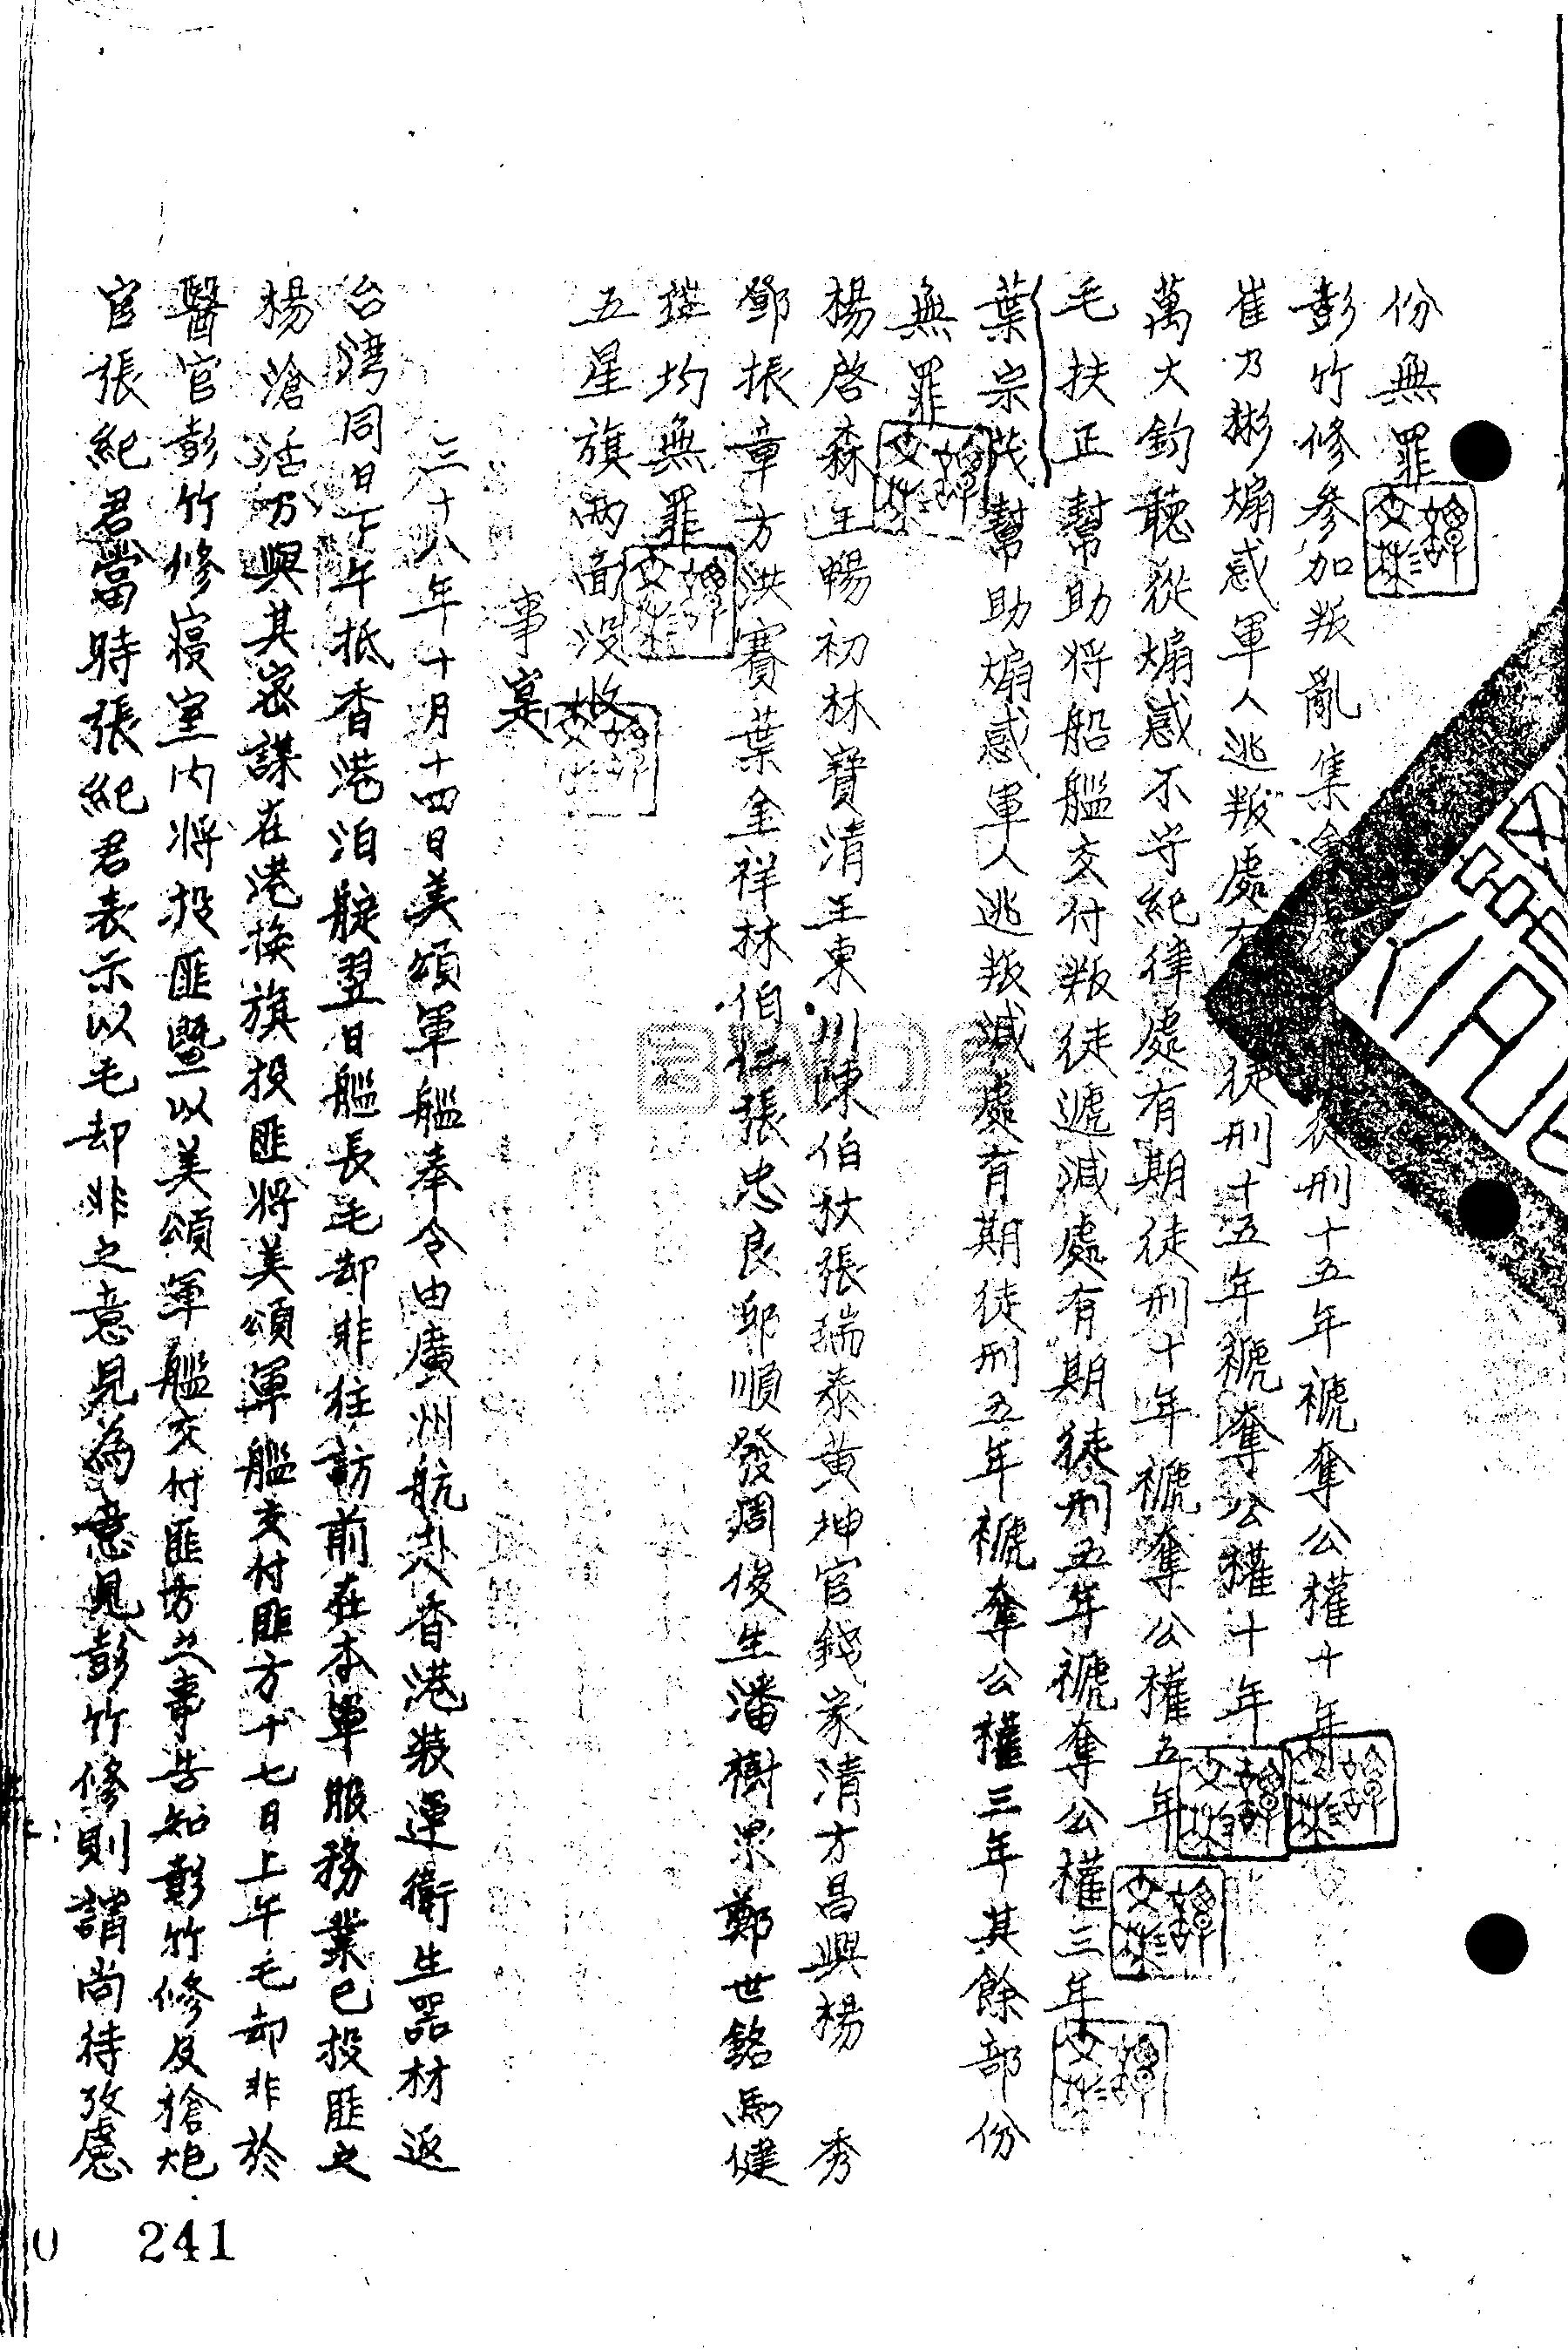 份無罪
彭竹修參加叛亂集會處 徒刑十五年褫奪公權十年
崔乃彬煽惑軍人逃叛處有 徒刑十五年褫奪公權十年
萬大鈞聽從煽惑不守紀律處有期徒刑十年褫奪公權五年
毛扶正幫助將船艦交付叛徒遞減處有期徒刑五年褫奪公權三年
葉宗茂幫助煽惑軍人逃叛減處有期徒刑五年褫奪公權三年其餘部份
無罪
楊啓森王暢初林寶清王東川陳伯秋張瑞泰黃坤官錢家清方昌興楊 秀
鄧振章方洪賽葉金祥林伯仁張忠良邱順發周俊生潘樹 鄭世銘馬健
 均無罪
五星旗兩面沒收
事實
三十八年十月十四日美頌軍艦奉令由廣州航赴香港裝運衛生器材返
台灣同日下午抵香港泊碇翌日艦長毛却非往訪前在本軍服務業已投匪之
楊滄活乃與其密謀在港換旗投匪將美頌軍艦交付匪方十七日上午毛却非於
醫官彭竹修寢室內將投匪暨以美頌軍艦交付匪方之事告知彭竹修及槍炮
官張紀君當時張紀君表示以毛却非之意見為意見彭竹修則謂尚待攷慮
241